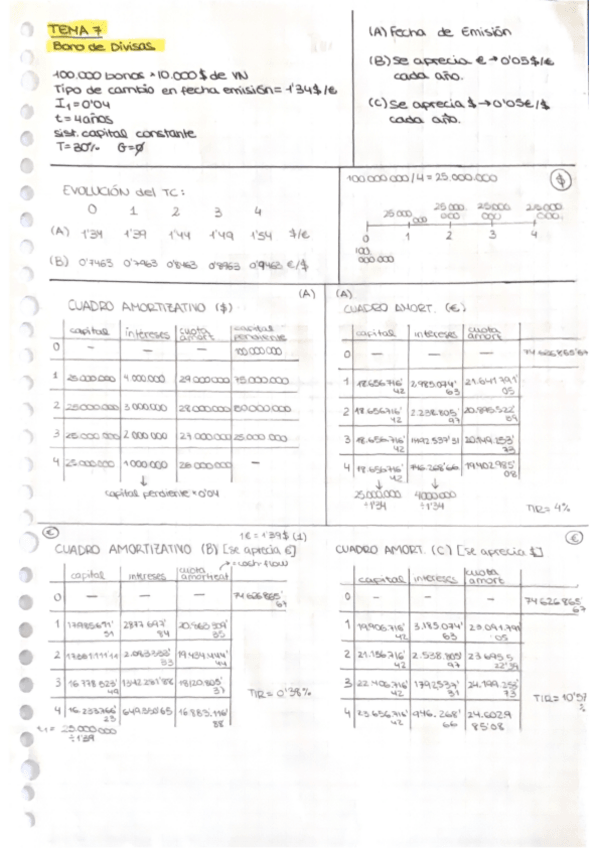 TEMA 7
Bono de Divisas
100.000 bonos * 10.000 $ de VN
Tipo de cambio en fecha emisión = 1'34 $/€
I₁ = 0'04
t = 4 años
sist. capital constante
T = 30% G = ∅
(A) Fecha de Emisión
(B) Se aprecia € → 0'05 $/€
cada año.
(C) Se aprecia $ → 0'05 €/$
cada año.
EVOLUCIÓN del TC:
0 1 2 3 4
(A) 1'34 1'39 1'44 1'49 1'54 $/€
(B) 0'7463 0'7963 0'8463 0'8963 0'9463 €/$
100 000 000/4 = 25.000.000
$
25 000 000 25 000 000 25 000 000 25 000 000
0 1 2 3 4
100 000 000
(A)
CUADRO AMORTIZATIVO ($)
capital intereses cuota amort capital pendiente
0 — — — 100.000.000
1 25.000.000 4 000 000 29 000 000 75.000.000
2 25.000.000 3 000 000 28 000 000 50.000.000
3 25.000.000 2 000 000 27 000 000 25 000 000
4 25.000.000 1 000 000 26 000 000 —
capital pendiente * 0'04
(A)
CUADRO AMORT. (€)
capital intereses cuota amort
0 — — — 74 626 865'67
1 18.656.716'42 2.985.074'63 21.641.791'05
2 18.656.716'42 2.238.805'97 20.895.522'39
3 18.656.716'42 1492 537'31 20.149.253'73
4 18.656.716'42 746.268'66 19.402.985'08
25.000.000 ÷1'34
4000000 ÷1'34
TIR = 4%
€
1€ = 1'39 $ (1)
CUADRO AMORTIZATIVO (B) [se aprecia €]
→ cash-flow
capital intereses cuota
0 — — — 74 626 865'67
TIR = 0'38%
25.000.000
÷1'39
€
CUADRO AMORT. (C) [se aprecia $]
capital intereses cuota amort
0 — — — 74 626 865'67
1 19.906.716'42 3.183.074'63 23.091.791'05
2 21.156.716'42 2.538.805'97
3 22.406.716'42 1792537'31 24.199.253'73
4 23.656.716'42 946.268'66 24.6029 85'08
TIR = 10'57%